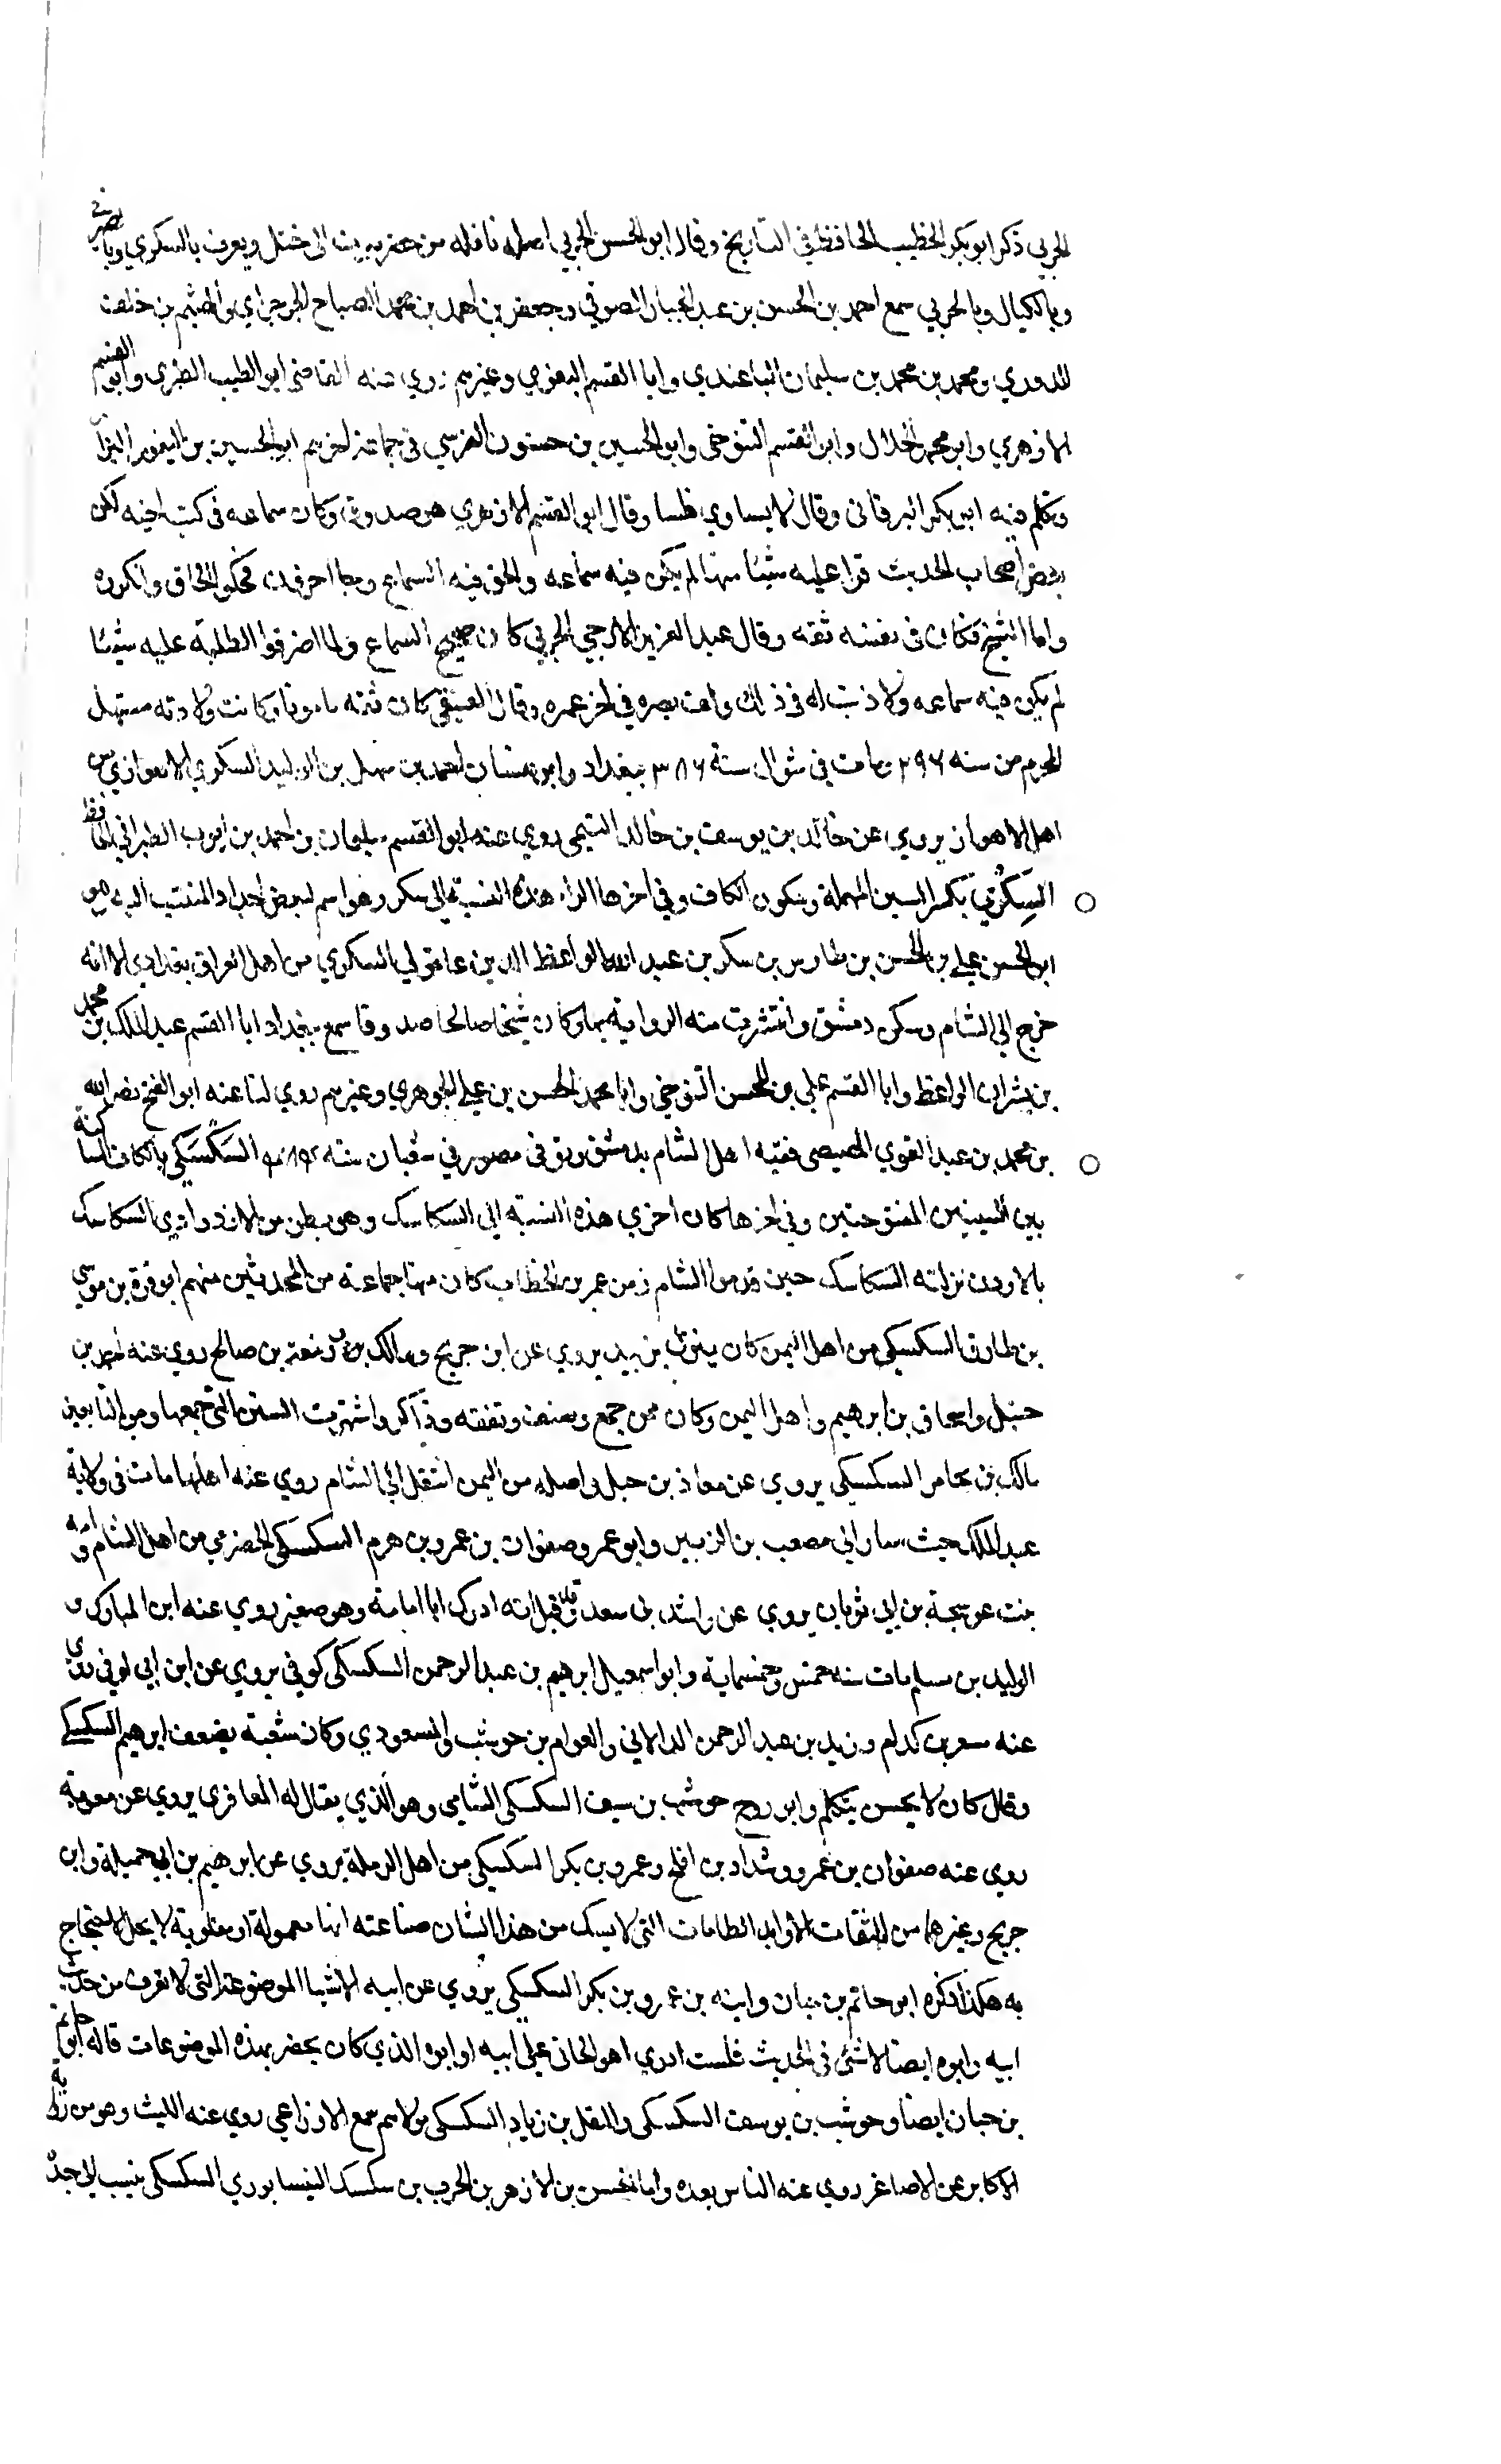 الحربي ذكر ابو بكر الخطيب الحافظ في التاريخ وقال ابو الحسن الحربي اصله ناقله من حضر بيت الى ختل ويعرف بالسكري وبالصيرفي
وبالكيال وبالحربي سمع احمد بن الحسن بن عبد الجبار الصوفي وجعفر بن احمد بن محمد الصباح الجرجراي والهيثم بن خلف
الدوري ومحمد بن محمد بن سليمان الباغندي وابا القسم البغوي وغيرهم روي عنه القاضي ابو الطيب الطبري وابو القسم
الازهري وابو محمد الخلال وابو القسم التنوخي وابو الحسين بن حسنون النرسي في جماعة اخرهم ابو الحسين بن النقور البزاز
وتكلم فيه ابو بكر البرقاني وقال لا يساوي فلسا وقال ابو القسم الازهري هو صدوق وكان سماعه في كتب اخيه لكن
بعض اصحاب الحديث قرا عليه شيئا منها لم يكن فيه سماعه والحق فيه السماع وجا اخرون فحكوا الالحاق وانكروه
واما الشيخ فكان في نفسه ثقه وقال عبد العزيز الازجي الحربي كان صحيح السماع ولما اضر قرا الطلبة عليه شيئا
لم يكن فيه سماعه ولا ذنب له في ذلك وذهب بصره في اخر عمره وقال العتيقي كان ثقة مامونا وكانت ولادته مستهل
المحرم من سنه ٢٩٦ ومات في شوال سنة ٣٨٦ ببغداد وابو غسان احمد بن سهل بن الوليد السكري الاهوازي من
اهل الاهواز يروي عن خالد بن يوسف بن خالد السمتي روي عنه ابو القسم سليمان بن احمد بن ايوب الطبراني الحافظ
السِكْري بكسر السين المهملة وسكون الكاف وفي اخرها الراء هذه النسبة الى سكر وهو اسم لبعض اجداد المنتسب اليه وهو
ابو الحسن علي بن الحسن بن طاوس بن سكر بن عبد الله الواعظ الدير عاقولي السكري من اهل العراق بغدادي الا انه
خرج الى الشام وسكن دمشق وانتشرت منه الرواية بها وكان شيخا صالحا صدوقا سمع ببغداد ابا القسم عبد الملك بن محمد
بن بشران الواعظ وابا القسم علي بن المحسن التنوخي وابا محمد الحسن بن علي الجوهري وغيرهم روي لنا عنه ابو الفتح نصر الله
بن محمد بن عبد القوي المصيصي فقيه اهل الشام بدمشق وتوفي بصور في شعبان سنة السَكْسَكي بالكاف الساكنة
بين السينين المفتوحتين وفي اخرها كاف اخري هذه النسبة الى السكاسك وهو بطن من الازد ووادي السكاسك
بالاردن نزلته السكاسك حين قدموا الشام زمن عمر بن الخطاب كان منها جماعة من المحدثين منهم ابو قرة بن موسى
بن طارق السكسكي من اهل اليمن كان ينزل بزبيد يروي عن ابن جريج ومالك بن وزمعة بن صالح روي عنه احمد بن
حنبل واسحاق بن ابرهيم واهل اليمن وكان ممن جمع وصنف وتفقه وذاكر واشتهرت السنن التي جمعها ومن التابعين
مالك بن يخامر السكسكي يروي عن معاذ بن جبل واصله من اليمن انتقل الى الشام روي عنه اهلها مات في ولاية
عبد الملك حيث سار الى مصعب بن الزبير وابو عمرو صفوان بن عمرو بن هرم السكسكي الحضرمي من اهل الشام وامه
بنت عوسجة بن ابي ثوبان يروي عن راشد بن سعد وقد قيل انه ادرك ابا امامة وهو صغير روي عنه ابن المبارك و
الوليد بن مسلم مات سنه خمس وخمسماية وابو اسمعيل ابرهيم بن عبد الرحمن السكسكي كوفي يروي عن ابن ابي اوفي روي
عنه مسعر بن كدام ويزيد بن عبد الرحمن الدالاني والعوام بن حوشب والمسعودي وكان شعبة يضعف ابرهيم السكسكي
وقال كان لا يحسن يتكلم وابو روح حوشب بن سيف السكسكي الشامي وهو الذي يقال له المعافري يروي عن معوية
روي عنه صفوان بن عمرو وشداد بن افلح وعمرو بن بكر السكسكي من اهل الرملة يروي عن ابرهيم بن ابي عبلة وابن
جريج وغيرهما من الثقات الاوابد الطامات التي لا يشك من هذا الشان صناعته انها معمولة او مقلوبة لا يحل الاحتجاج
به هكذا ذكره ابو حاتم بن حبان وابنه بن عمرو بن بكر السكسكي يروي عن ابيه الاشيا الموضوعة التي لا تعرف من حديث
ابيه وابوه ايضا لا شئ في الحديث فلست ادري اهو الجاني على ابيه او ابوه الذي كان يخصه بهذه الموضوعات قاله ابو حاتم
بن حبان ايضا وحوشب بن يوسف السكسكي والهقل بن زياد السكسكي مولاهم سمع الاوزاعي روي عنه الليث وهو من رواية
الاكابر عن الاصاغر روي عنه الناس بعده واما الحسن بن الازهر بن الحرب بن سكسك النيسابوري السكسكي ينسب الى جده